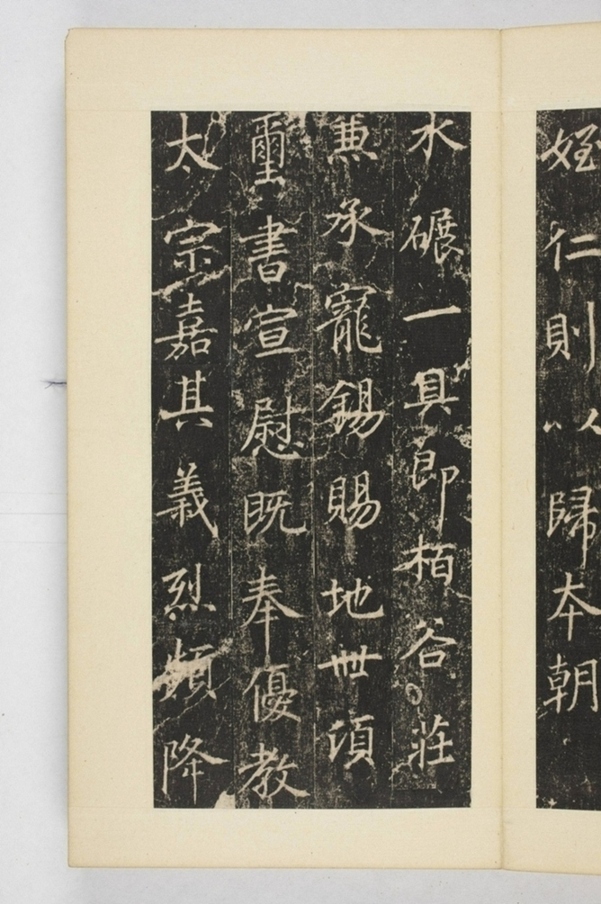 姪仁則以歸本朝
水碾一具即栢谷莊
兼承寵錫賜地卌頃
璽書宣慰既奉優教
太宗嘉其義烈頻降